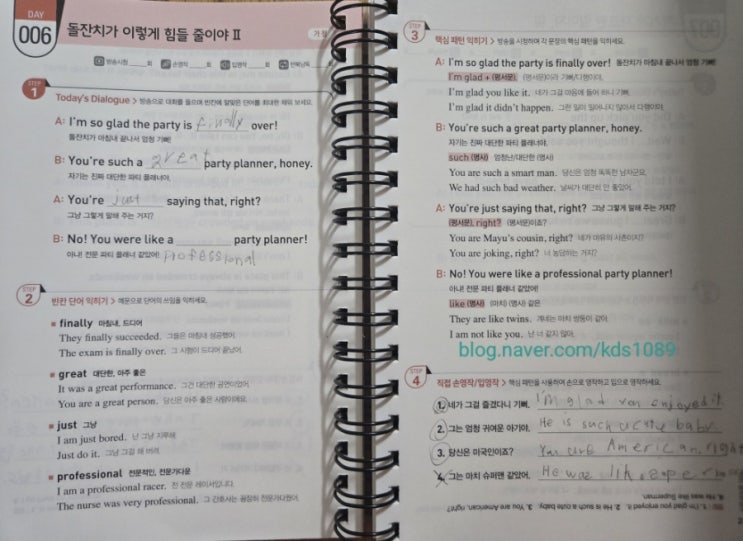 DAY
006
돌잔치가 이렇게 힘들 줄이야 II
가정
방송시청 ___회
손영작 ___회
입영작 ___회
반복낭독 ___회
STEP 1
Today's Dialogue > 방송으로 대화를 들으며 빈칸에 알맞은 단어를 최대한 채워 보세요.
A: I'm so glad the party is finally over!
돌잔치가 마침내 끝나서 엄청 기뻐!
B: You're such a great party planner, honey.
자기는 진짜 대단한 파티 플래너야.
A: You're just saying that, right?
그냥 그렇게 말해 주는 거지?
B: No! You were like a ______ party planner!
아내! 전문 파티 플래너 같았어! professional
STEP 2
빈칸 단어 익히기 > 예문으로 단어의 쓰임을 익히세요.
finally 마침내, 드디어
They finally succeeded. 그들은 마침내 성공했어.
The exam is finally over. 그 시험이 드디어 끝났어.
great 대단한, 아주 좋은
It was a great performance. 그건 대단한 공연이었어.
You are a great person. 당신은 아주 좋은 사람이에요.
just 그냥
I am just bored. 난 그냥 지루해.
Just do it. 그냥 그걸 해 버려.
professional 전문적인, 전문가다운
I am a professional racer. 전 전문 레이서입니다.
The nurse was very professional. 그 간호사는 굉장히 전문가다웠어.
STEP 3
핵심 패턴 익히기 > 방송을 시청하며 각 문장의 핵심 패턴을 익히세요.
A: I'm so glad the party is finally over! 돌잔치가 마침내 끝나서 엄청 기뻐!
I'm glad + (평서문). (평서문)이라 기뻐/다행이야.
I'm glad you like it. 네가 그걸 마음에 들어 하니 기뻐.
I'm glad it didn't happen. 그런 일이 일어나지 않아서 다행이야.
B: You're such a great party planner, honey.
자기는 진짜 대단한 파티 플래너야.
such (명사) 엄청난/대단한 (명사)
You are such a smart man. 당신은 엄청 똑똑한 남자군요.
We had such bad weather. 날씨가 대단히 안 좋았어.
A: You're just saying that, right? 그냥 그렇게 말해 주는 거지?
(평서문), right? (평서문)이죠?
You are Mayu's cousin, right? 네가 마유의 사촌이지?
You are joking, right? 너 농담하는 거지?
B: No! You were like a professional party planner!
아내! 전문 파티 플래너 같았어!
like (명사) (마치) (명사) 같은
They are like twins. 걔네는 마치 쌍둥이 같아.
I am not like you. 난 너 같지 않아.
blog.naver.com/kds1089
STEP 4
직접 손영작/입영작 > 핵심 패턴을 사용하며 손으로 영작하고 입으로 영작하세요.
1. 네가 그걸 즐겼다니 기뻐. I'm glad you enjoyed it.
2. 그는 엄청 귀여운 아기야. He is such baby
3. 당신은 미국인이죠? You are American, right
4. 그는 마치 슈퍼맨 같았어. He was
1. I'm glad you enjoyed it. 2. He is such a cute baby. 3. You are American, right?
4. He was like Superman.